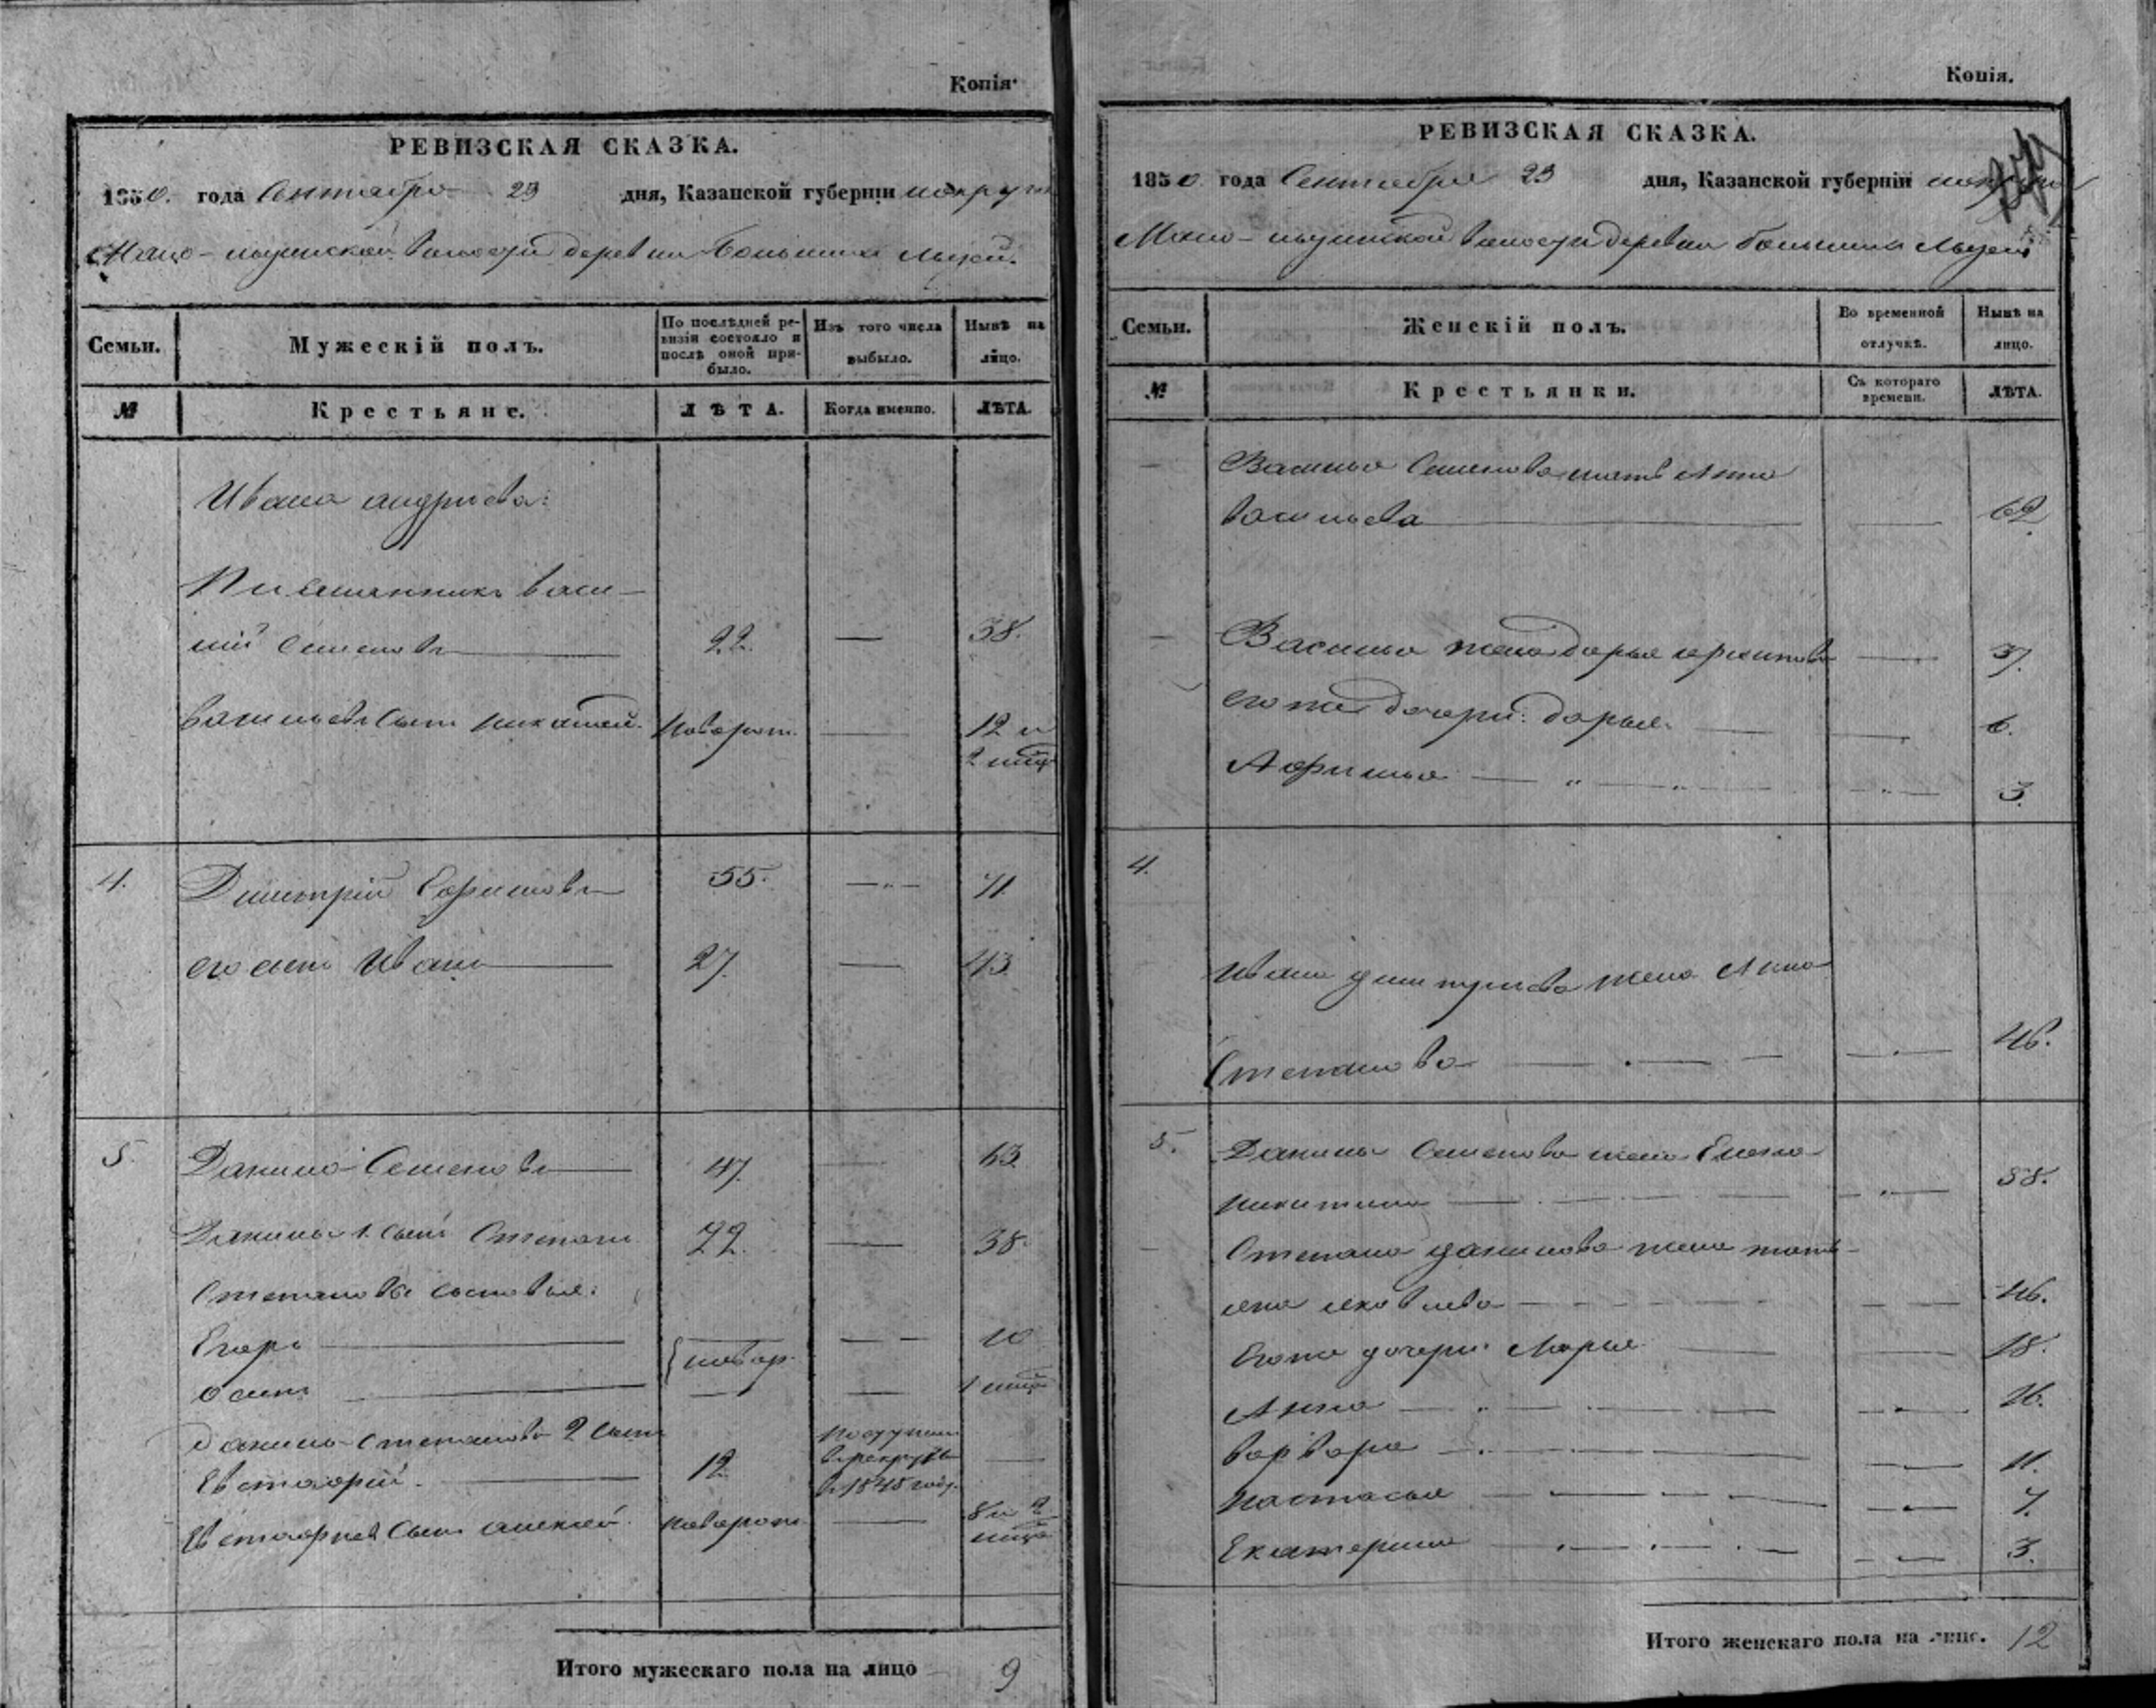 Копія.
РЕВИЗСКАЯ СКАЗКА.
1850. года Сентября 23 дня, Казанской губерніи
волости деревни
Семьи.
Мужескій полъ.
По послѣдней ре-
визіи состояло и
послѣ оной при-
было.
Изъ того числа
выбыло.
Нынѣ на
лицо.
№
Крестьяне.
ЛѢТА.
Когда именно.
ЛѢТА.
Ивана андреева:
Племянникъ Васи-
лій Семеновъ 22. — 38.
васильевъ сынъ новорож. — 12 и
2 мѣц
4. Димитрій Ефимовъ 55. — 71.
его сынъ Иванъ 27. — 43.
5. Данило Семеновъ 47. — 63.
Данилы 1. сынъ Степанъ 22. — 38.
Степановы сыновья:
Егоръ — новор. — 10
Осипъ — — 1 мѣц
Данилы Степанова 2 сынъ поступилъ
Евстафій. 12 в рекруты
в 1848 году.
Евстафіев сынъ алексей. новорож. — 8 и 2
мѣца
Итого мужескаго пола на лицо 9
Копія.
РЕВИЗСКАЯ СКАЗКА.
1850 года Сентября 23 дня, Казанской губерніи
волости деревни
Семьи.
Женскій полъ.
Во временной
отлучкѣ.
Нынѣ на
лицо.
№
Крестьянки.
Съ котораго
времени.
ЛѢТА.
Василья Семенова мать Анна
васильева 62
Василья жена дарья архипова — 37.
его же дочери: дарья. — 6.
Афимья — 3.
4.
Ивана димитриева жена Анна
Степанова — 46.
5. Данилы Семенова жена Елена
никитина — 58.
Степана данилова жена тать-
яна яковлева — 46.
Его же дочери: Марья — 18.
Анна — 16.
варвара — 11.
настасья — 7.
Екатерина — 3.
Итого женскаго пола на лицо. 12